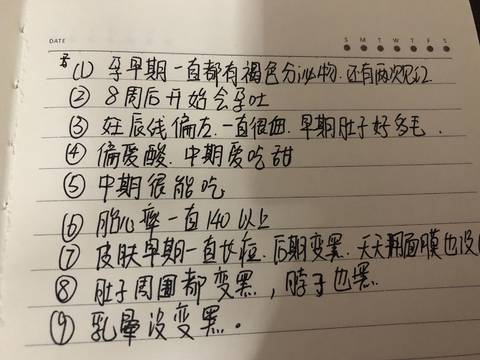 DATE
S M T W T F S
(1) 孕早期一直都有褐色分泌物.还有两次见红
② 8周后开始会孕吐
③ 妊辰线偏左.一直很细.早期肚子好多毛.
④ 偏爱酸.中期爱吃甜
⑤ 中期很能吃
⑥ 胎心率一直140以上
⑦ 皮肤早期一直长痘.后期变黑.天天用面膜也没
⑧ 肚子周围都变黑,脖子也黑
⑨ 乳晕没变黑.